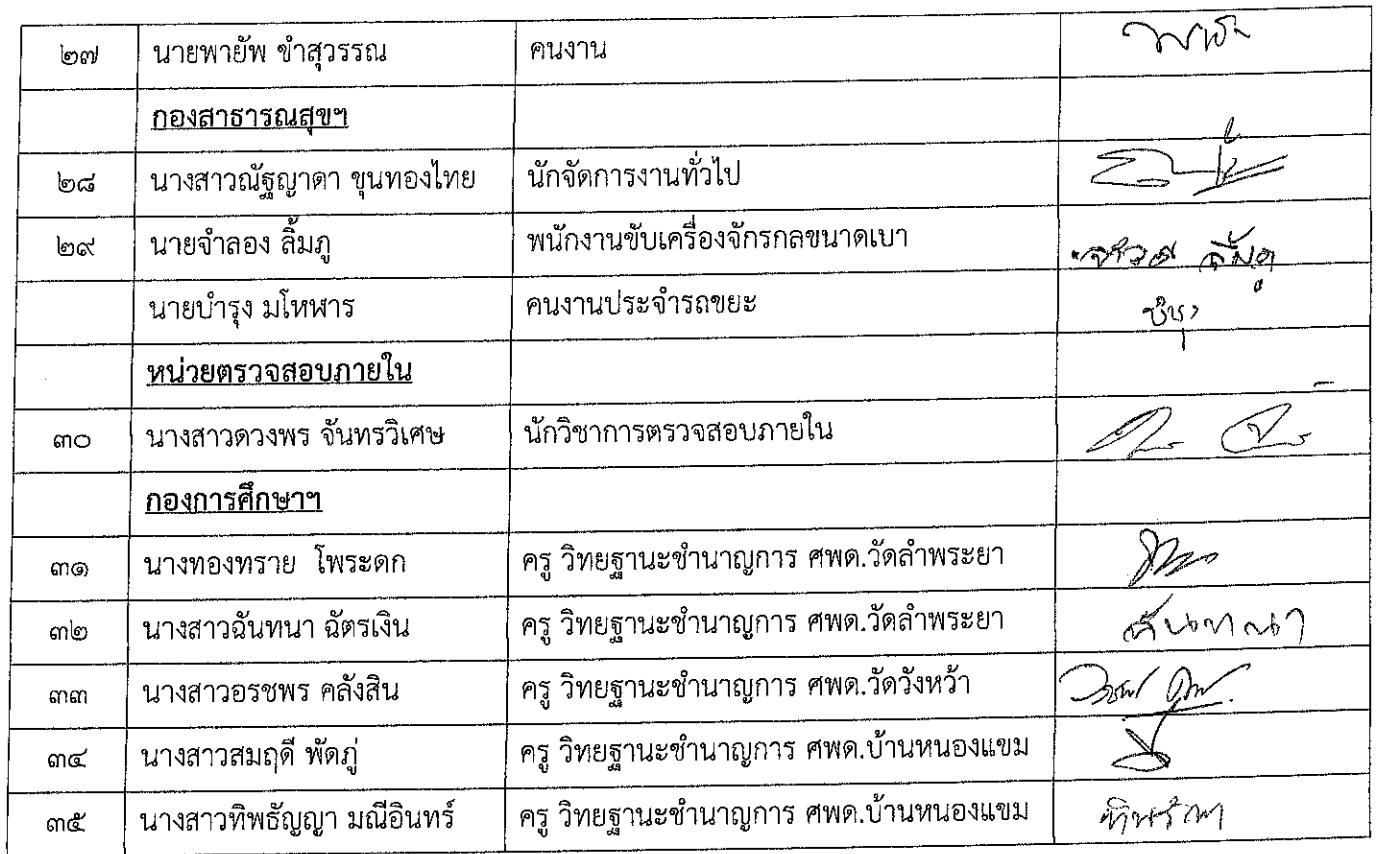 ๒๗ นายพายัพ ขำสุวรรณ คนงาน
กองสาธารณสุขฯ
๒๘ นางสาวณัฐญาดา ขุนทองไทย นักจัดการงานทั่วไป
๒๙ นายจำลอง ลิ้มภู พนักงานขับเครื่องจักรกลขนาดเบา
นายบำรุง มโหฬาร คนงานประจำรถขยะ
หน่วยตรวจสอบภายใน
๓๐ นางสาวดวงพร จันทรวิเศษ นักวิชาการตรวจสอบภายใน
กองการศึกษาฯ
๓๑ นางทองทราย โพระดก ครู วิทยฐานะชำนาญการ ศพด.วัดลำพระยา
๓๒ นางสาวฉันทนา ฉัตรเงิน ครู วิทยฐานะชำนาญการ ศพด.วัดลำพระยา ฉันทนา
๓๓ นางสาวอรชพร คลังสิน ครู วิทยฐานะชำนาญการ ศพด.วัดวังหว้า
๓๔ นางสาวสมฤดี พัดภู่ ครู วิทยฐานะชำนาญการ ศพด.บ้านหนองแขม
๓๕ นางสาวทิพธัญญา มณีอินทร์ ครู วิทยฐานะชำนาญการ ศพด.บ้านหนองแขม